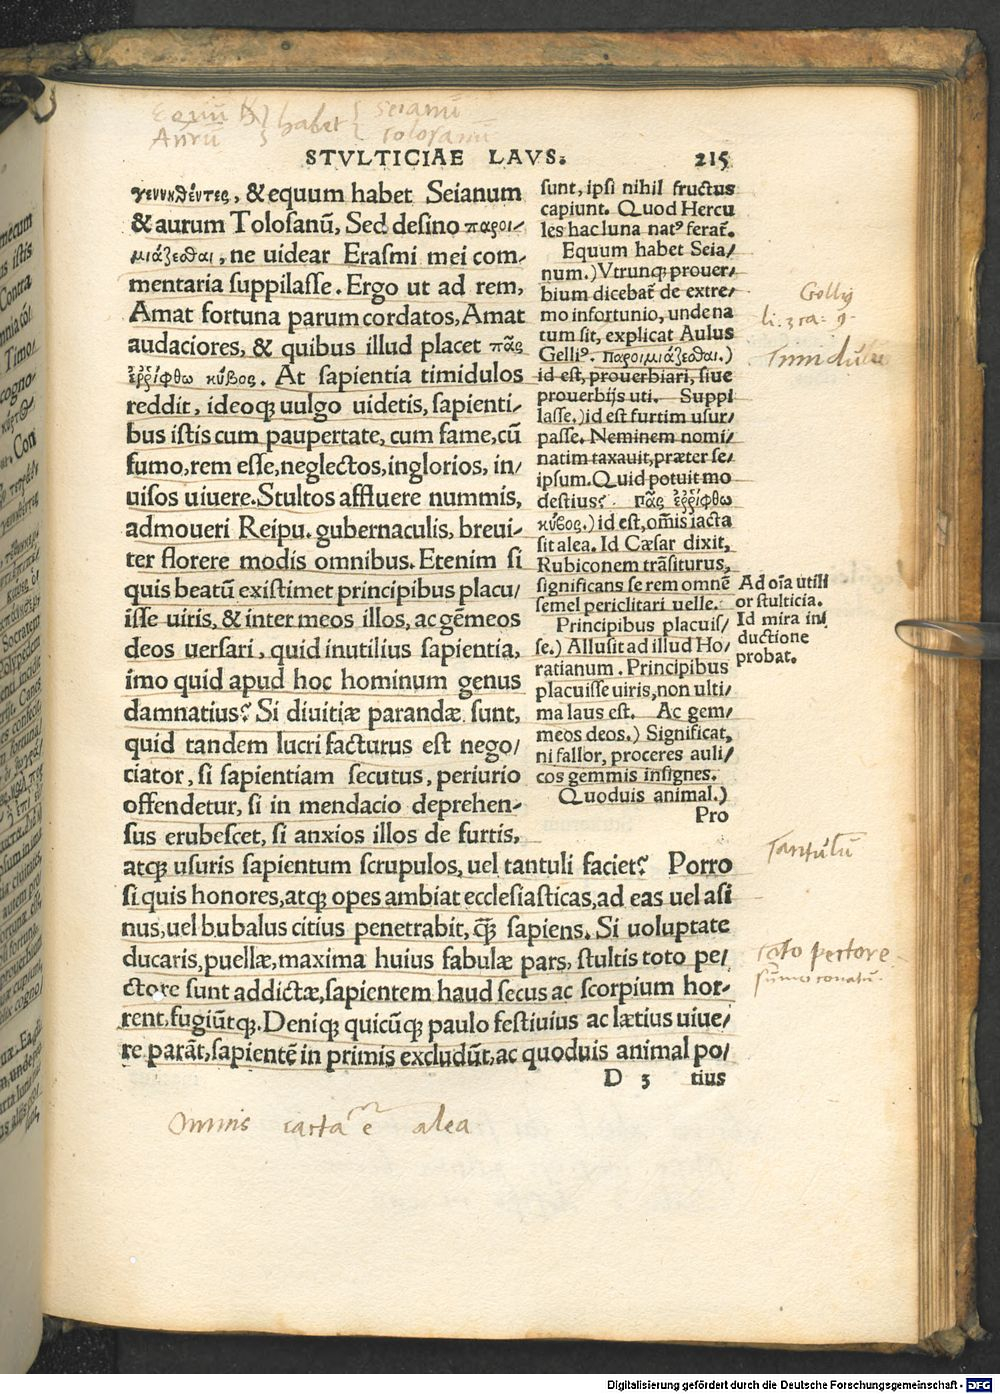 Equũ
Aurũ } habet { seianũ
tolosanũ
STVLTICIAE LAVS. 215
γεννηθέντες, & equum habet Seianum
& aurum Toloſanũ, Sed deſino παροι-
μιάζεσθαι, ne uidear Eraſmi mei com-
mentaria ſuppilaſſe. Ergo ut ad rem,
Amat fortuna parum cordatos, Amat
audaciores, & quibus illud placet πᾶς
ἐῤῥίφθω κύβος. At ſapientia timidulos
reddit, ideoq; uulgo uidetis, ſapienti/
bus iſtis cum paupertate, cum fame, cũ
fumo, rem eſſe, neglectos, inglorios, in/
uiſos uiuere. Stultos affluere nummis,
admoueri Reipu. gubernaculis, breui-
ter florere modis omnibus. Etenim ſi
quis beatũ exiſtimet principibus placu/
iſſe uiris, & inter meos illos, ac gẽmeos
deos uerſari, quid inutilius ſapientia,
imo quid apud hoc hominum genus
damnatius? Si diuitiæ parandæ ſunt,
quid tandem lucri facturus eſt nego/
ciator, ſi ſapientiam ſecutus, periurio
offendetur, ſi in mendacio deprehen-
ſus erubeſcet, ſi anxios illos de furtis,
atq; uſuris ſapientum ſcrupulos, uel tantuli faciet? Porro
ſi quis honores, atq; opes ambiat eccleſiaſticas, ad eas uel aſi
nus, uel bubalus citius penetrabit, q̃; ſapiens. Si uoluptate
ducaris, puellæ, maxima huius fabulæ pars, ſtultis toto pe/
ctore ſunt addictæ, ſapientem haud ſecus ac ſcorpium hor-
rent, fugiũtq;. Deniq; quicũq; paulo feſtiuius ac lætius uiue/
re parãt, ſapientẽ in primis excludũt, ac quoduis animal po/
D 3 tius
ſunt, ipſi nihil fructus
capiunt. Quod Hercu
les hac luna natꝰ ferat̃.
Equum habet Seia/
num.) Vtrunq; prouer/
bium dicebat̃ de extre/
mo infortunio, unde na
tum ſit, explicat Aulus
Gelliꝰ. παροιμιάζεσθαι.)
id eſt, prouerbiari, ſiue
prouerbijs uti. Suppi
laſſe.) id eſt furtim uſur/
paſſe. Neminem nomi/
natim taxauit, præter ſe/
ipſum. Quid potuit mo
deſtius? πᾶς ἐῤῥίφθω
κύβος.) id eſt, om̃is iacta
ſit alea. Id Cæſar dixit,
Rubiconem trãſiturus,
ſignificans ſe rem omnẽ
ſemel periclitari uelle.
Principibus placuiſ/
ſe.) Alluſit ad illud Ho/
ratianum. Principibus
placuiſſe uiris, non ulti/
ma laus eſt. Ac gem/
meos deos.) Significat,
ni fallor, proceres auli/
cos gemmis inſignes.
Quoduis animal.)
Pro
li. 3 ca. 9.
Timidulus
Ad oĩa utili
or ſtulticia.
Id mira in/
ductione
probat.
Tantulũ
toto pectore
sum̃o conatu.
Omnis iacta ẽ alea
Digitalisierung gefördert durch die Deutsche Forschungsgemeinschaft - DFG